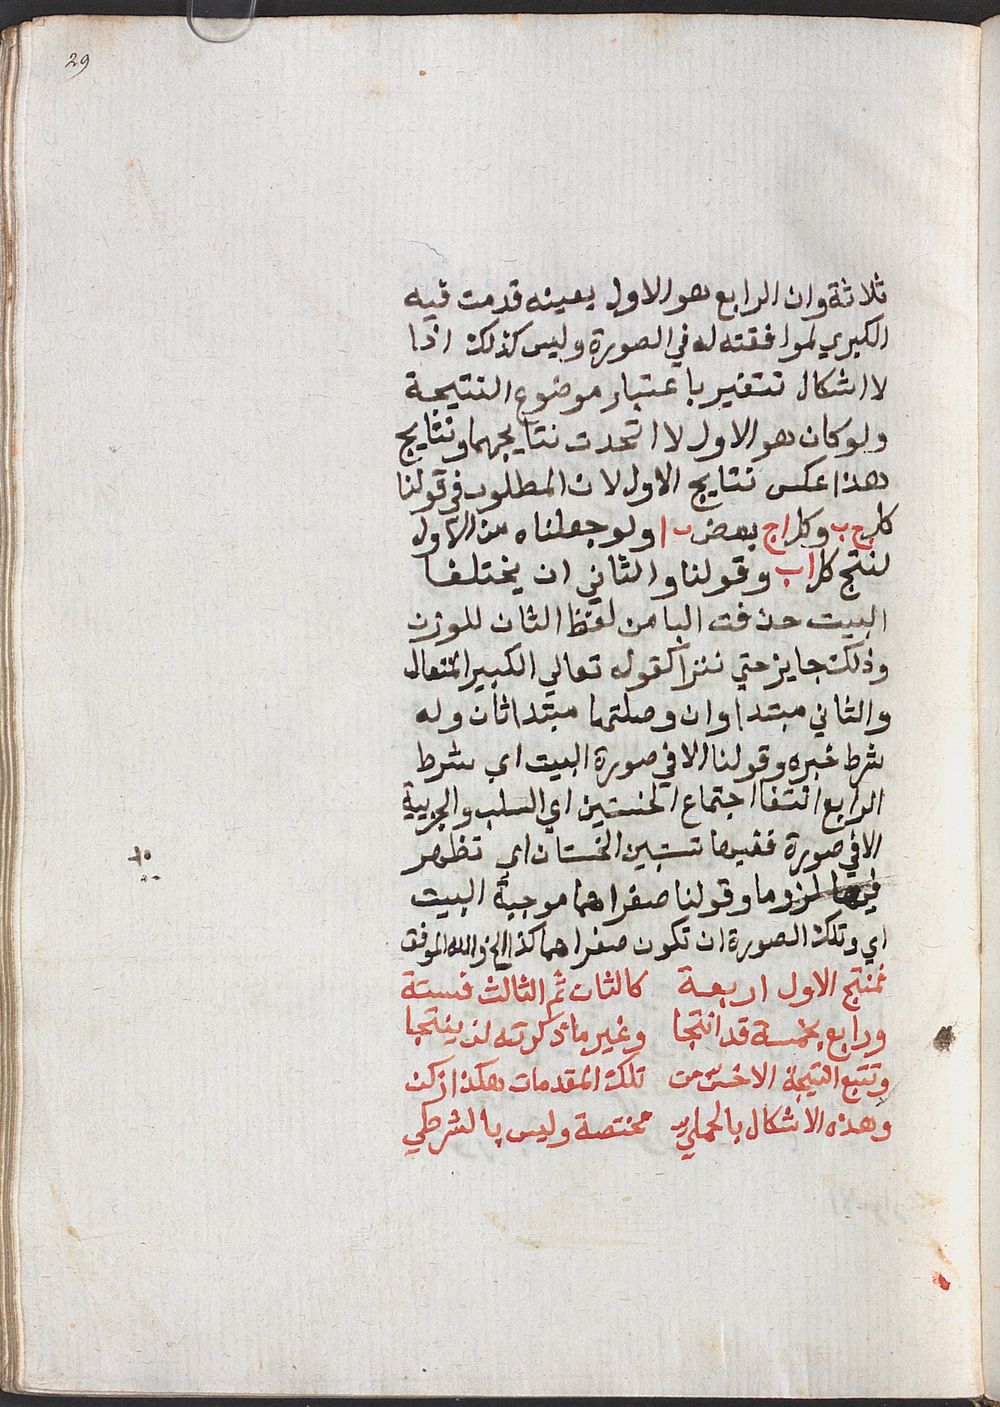 29
ثلاثة وان الرابع هو الاول بعينه قدمت فيه
الكبري لموافقته له في الصورة وليس كذلك اذا
لااشكال تتغير باعتبار موضوع النتيجة
ولو كان هو الاول لااتحدت نتايجهما ونتايج
هذا عكس نتايج الاول لان المطلوب في قولنا
كل ج ب وكل ا ج بعض ب ا ولو جعلناه من الاول
لنتج كل ا ب وقولنا والثاني ان يختلفا
البيت حذفت اليا من لفظ الثان للوزن
وذلك جايز حتي نثرا كقوله تعالي الكبير المتعال
والثاني مبتدا وان وصلتها مبتدا ثان وله
شرط خبره وقولنا الا في صورة البيت اي شرط
الرابع انتفا اجتماع الخستين اي السلب والجزيية
الا في صورة ففيها تستبين الخستان اي تظهر
فيها لزوما وقولنا صغراهما موجبة البيت
اي وتلك الصورة ان تكون صغراهما كذا الخ والله الموفق
فمنتج الاول اربعة كالثان ثم الثالث فستة
ورابع بخمسة قد انتجا وغير ما ذكرته لن ينتجا
وتتبع النتيجة الاخس من تلك المقدمات هكذا زكن
وهذه الاشكال بالحملي مختصة وليس بالشرطي